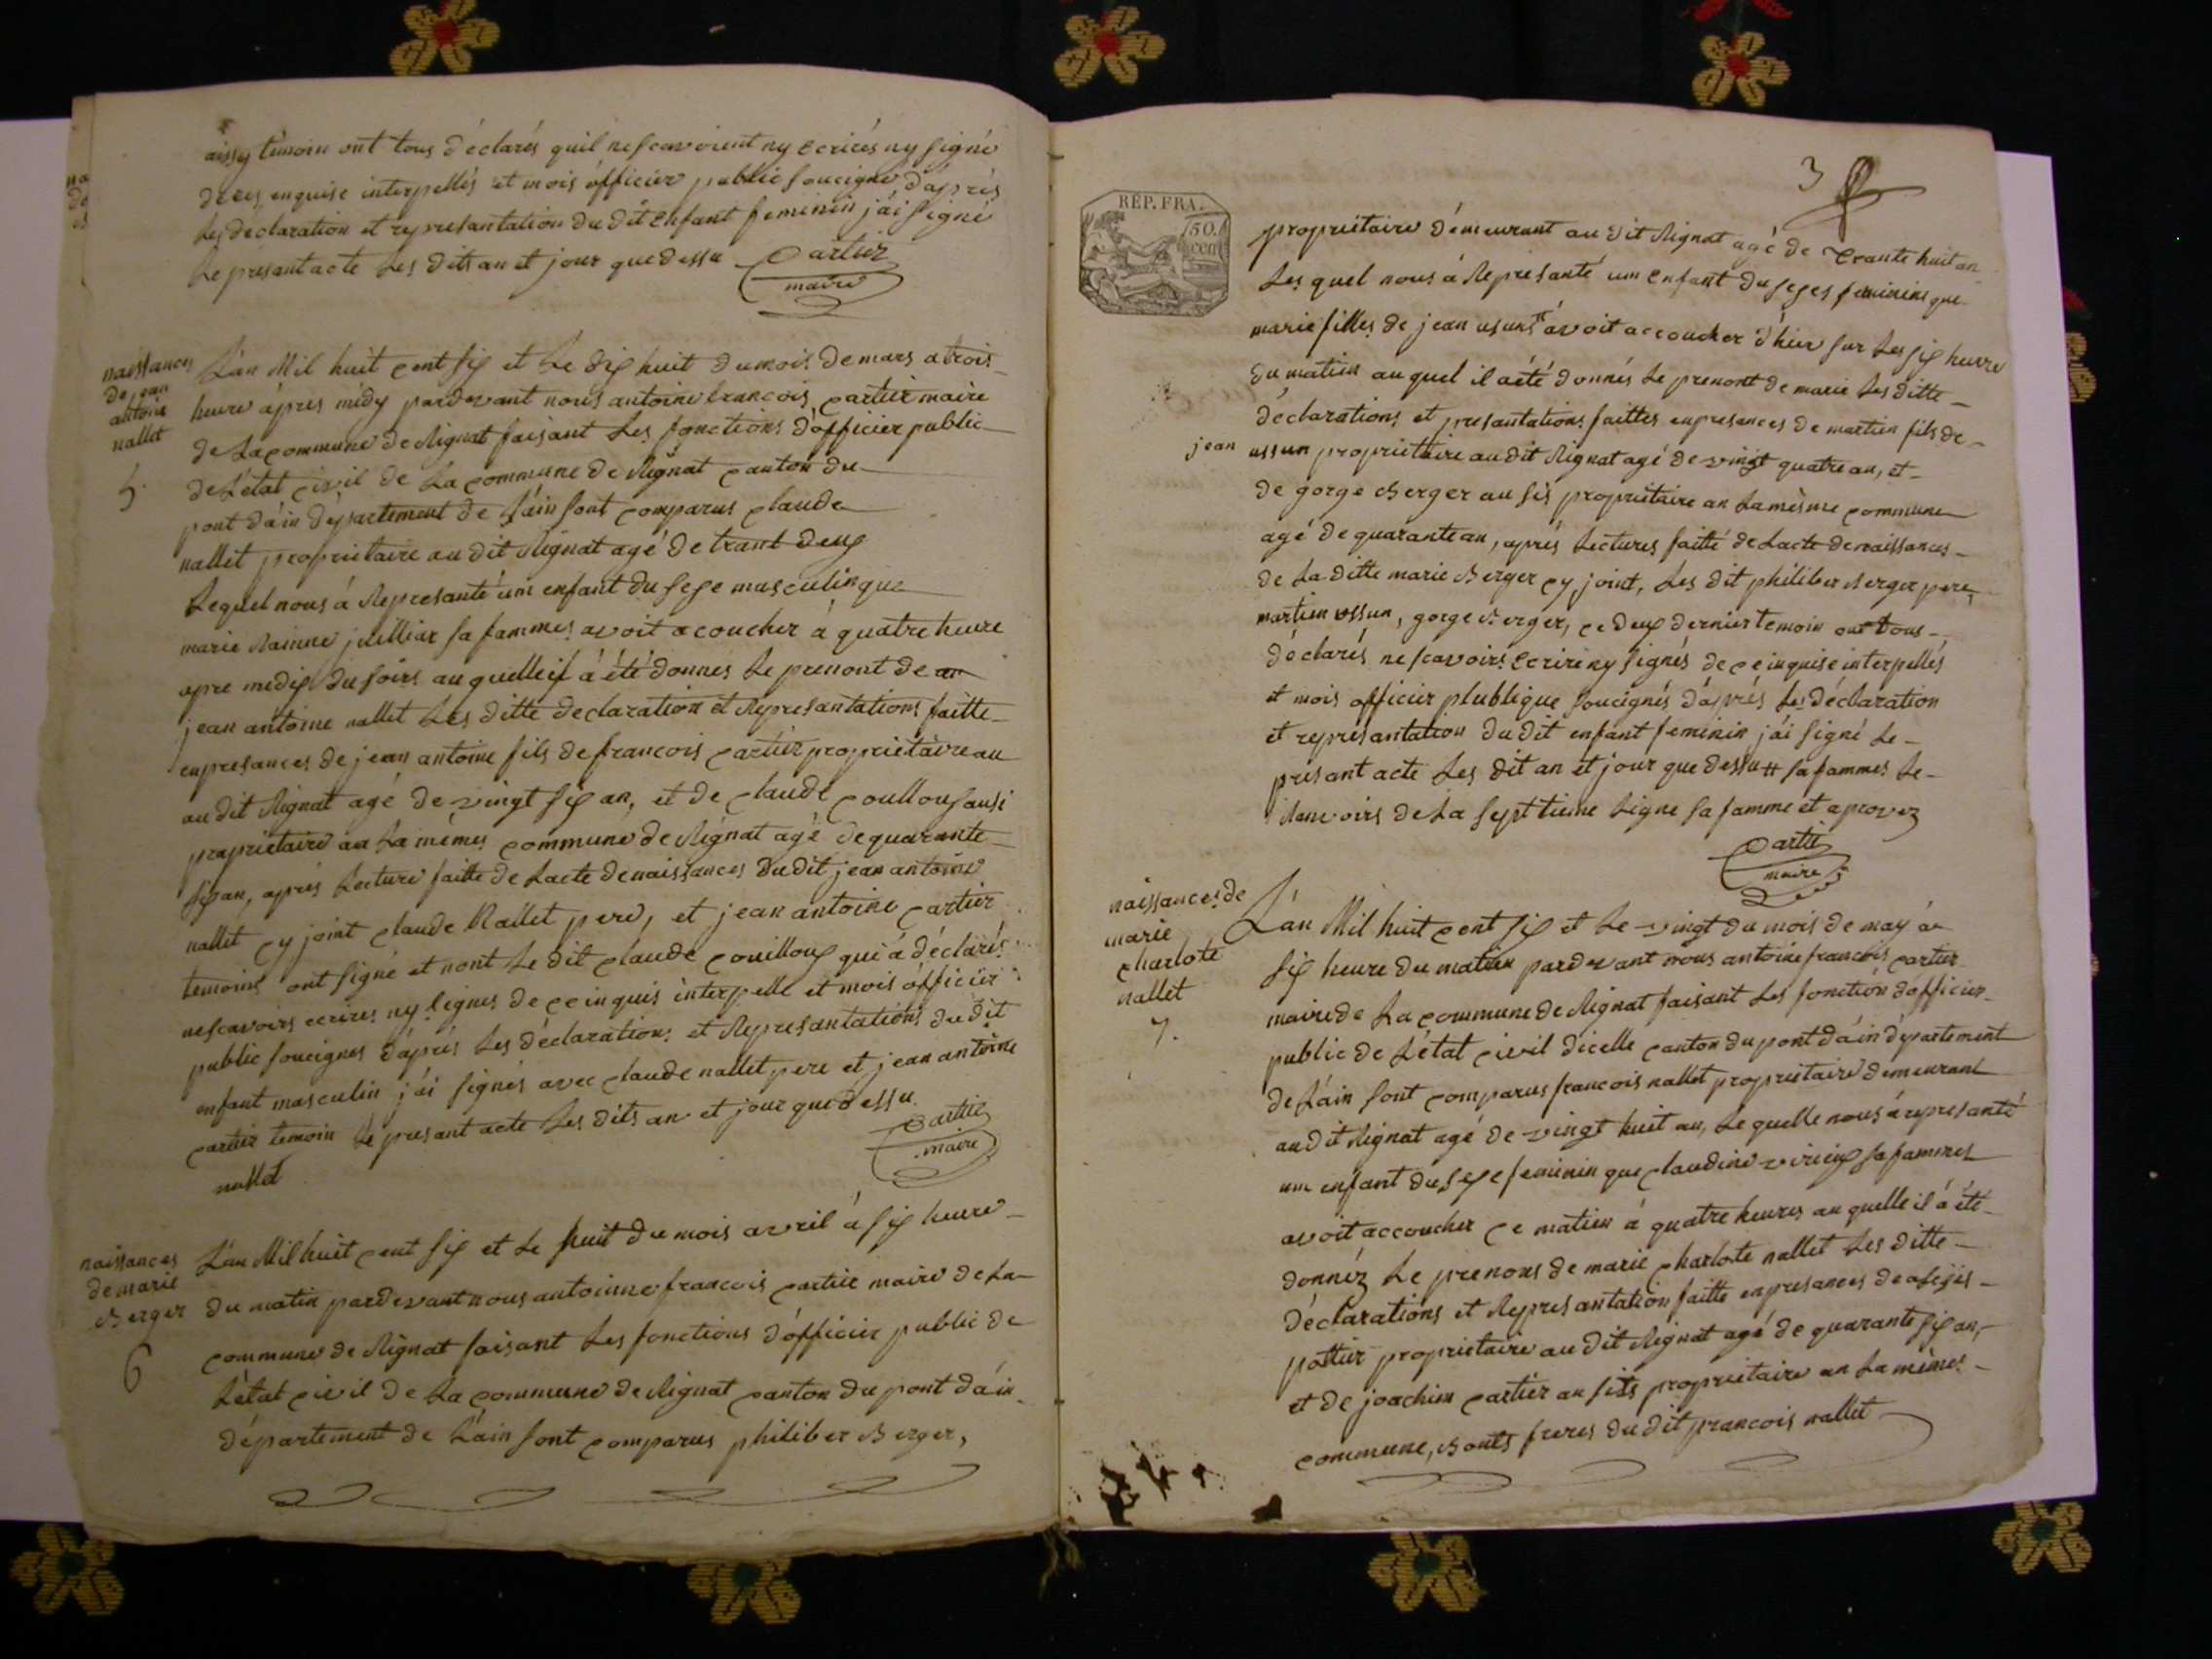 aissy temoin ont tous déclarés quil nescavoient ny Ecricés ny signé
de ces enquise interpellés et mois officier public soucigné d'aprés
les declaration et represantation du dit Enfant feminin j'ái signé
Le presant acte Les dits an et jour que dessu Cartier
maire
naissances
de jean
antoine
nallet
5.
L'an Mil huit cent six et Le dix huit du mois de mars a trois
heure ápres midy pardevant nous antoine francois cartier maire
de La commune de Rignat faisant Les fonctions d'officier public
de L'état civil de La commune de Rignat canton du
pont d'ain departement de L'áin sont comparus claude
nallet proprietaire au dit Rignat agé de trant deux
Lequel nous á Represanté um enfant du sexe masculin que
marie Rainne juilliar sa fammes avoit acoucher á quatre heure
apre medis du soirs au quelle il á été donnés Le prenont de an
jean antoine nallet Les ditte declaration et Represantations faitte
enpresances de jean antoine fils de francois cartier propriétaire au
au dit Rignat agé de vingt six an, et de claude coulloux ausi
propriétaire an La mêmes commune de Rignat agé de quarante
six an, aprés Lecture faitte de Lacte de naissances du dit jean antoine
nallet cy joint claude Nallet pere, et jean antoine cartier
temoins ont signé et nont Le dit claude couilloux qui á déclarés
nescavoirs ecrires ny signes de ce inquis interpelle et mois officier
public soucignes d'áprés Les déclarations et Represantations du dit
enfant masculin j'ái signés avec claude nallet pere et jean antoine
cartier temoin Le presant acte Les dits an et jour que dessu
Cartier
maire
nallet
naissances
de marie
Berger
6
L'an Mil huit cent six et Le huit du mois avril á six heure
du matin pardevant nous antoinne francois cartier maire de La
commune de Rignat faisant Les fonctions d'officier public de
L'état civil de La commune de Rignat canton du pont d'áin
département de L'áin sont comparus philiber Berger,
3
RÉP. FRA.
50.
cen
propriétaire démeurant au dit Rignat agé de trante huit an
Les quel nous á Represanté um Enfant du seges feminins que
marie filles de jean usuns # ávoit accoucher d'hier sur Les six heure
du matin au quel il á été donnés Le prenont de marie Les ditte
déclarations et presantations faittes enpresances de martin fils de
jean ussun propriétaire au dit Rignat agé de vingt quatre an, et
de gorge Berger au sis propriétaire an La mêsme commune
agé de quarante an, aprés Lectures faitté de Lacte de naissances
de La ditte marie Berger cy joint, Les dit philiber Berger pere,
martin ussun, gorge Berger, ce deux dernier temoin ont tous
déclarés nescavoirs Ecrire ny signés de ce inquise interpellés
et mois officier plublique soucignés d'aprés Les déclaration
et represantation du dit enfant feminin j'ái signé Le
presant acte Les dit an et jour que dessu # sa fammes Le
Ranvoirs de La sept tieme Ligne sa famme et aprovez
Cartie
maire
naissances de
marie
charlote
nallet
7.
L'an Mil huit cent six et Le vingt du mois de may á
six heure du matin pardevant nous antoine francois cartier
maire de La commune de Rignat faisant Les fonction d'officier
public de L'état civil d'icelle canton du pont d'áin département
de L'áin sont comparus francois nallet propriétaire demeurant
au dit Rignat agé de vingt huit an, Le quelle nous á represanté
um enfant du sexe feminin que claudine virieux sa fammes
avoit accoucher ce matin á quatre heures au quelle il á été
donnéz Le prenons de marie charlote nallet Les ditte
déclarations et Represantation faitte enpresances de alexis
pottier propriétaire au dit Rignat agé de quarante six an,
et de joachim cartier au sits propriétaire an La mêmes
commune, Bonts freres du dit francois nallet